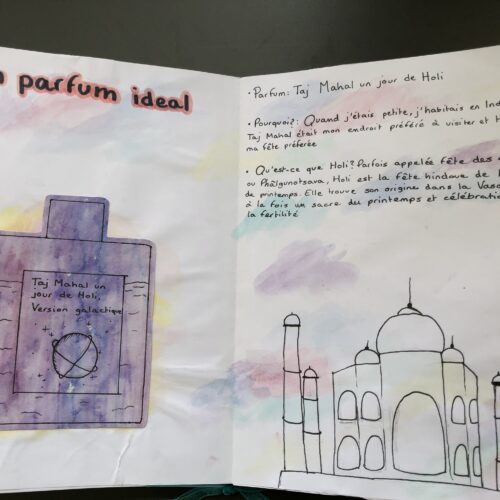 parfum ideal
Taj Mahal un
jour de Holi,
Version galactique
• Parfum: Taj Mahal un jour de Holi
• Pourquoi?: Quand j'étais petite, j'habitais en
Taj Mahal était mon endroit préféré à visiter et
ma fête préferée
• Qu'est-ce que Holi? Parfois appelée fête des
ou Phâlgunotsava, Holi est la fête hindoue de
de printemps. Elle trouve son origine dans la
à la fois un sacre du printemps et
la fertilité